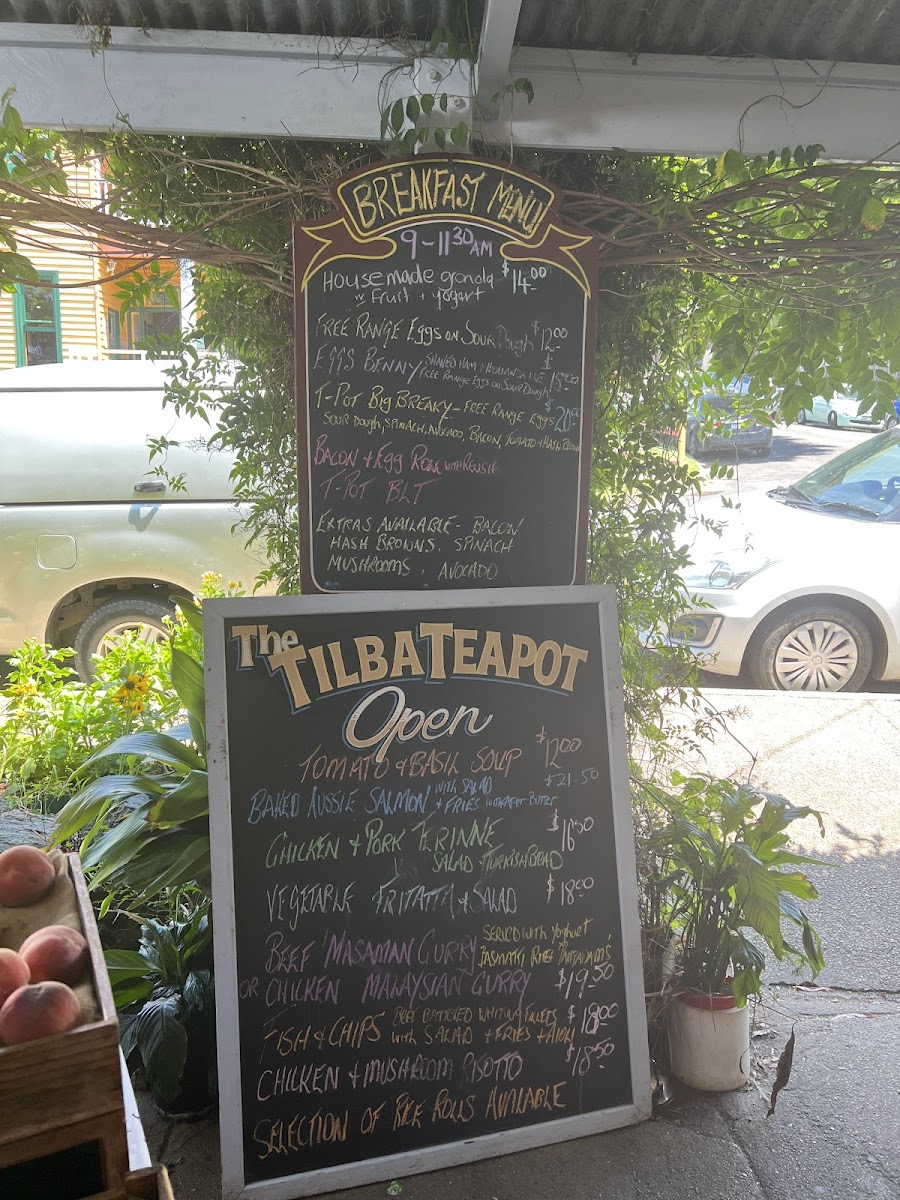 BREAKFAST MENU
9-11 30 AM
House made granola $14.00
w Fruit + yogurt
FREE RANGE EGGS ON SOUR Dough $12.00
EGGS BENNY SHAVED HAM, HOLLANDAISE
FREE RANGE EGGS ON SOUR DOUGH
T-POT BIG BREAKY - FREE RANGE EGGS $20.00
SOUR DOUGH, SPINACH, AVOCADO, BACON, TOMATO + HASH BROWN
BACON + EGG ROLL WITH RELISH
T-POT BLT
EXTRAS AVAILABLE - BACON
HASH BROWNS, SPINACH
MUSHROOMS, AVOCADO
The TILBA TEAPOT
Open
TOMATO & BASIL SOUP $12.00
BAKED AUSSIE SALMON WITH SALAD $21.50
+ FRIES WITH BUTTER
CHICKEN & PORK TERINNE $16.50
SALAD + TURKISH BREAD
VEGETABLE FRITATTA & SALAD $18.00
BEEF MASAMAN CURRY SERVED WITH YOGHURT
JASMATI RICE
OR CHICKEN MALAYSIAN CURRY $19.50
FISH & CHIPS BEER BATTERED WHITING FILLETS $18.00
WITH SALAD + FRIES + AIOLI
CHICKEN & MUSHROOM RISOTTO $18.50
SELECTION OF RICE ROLLS AVAILABLE